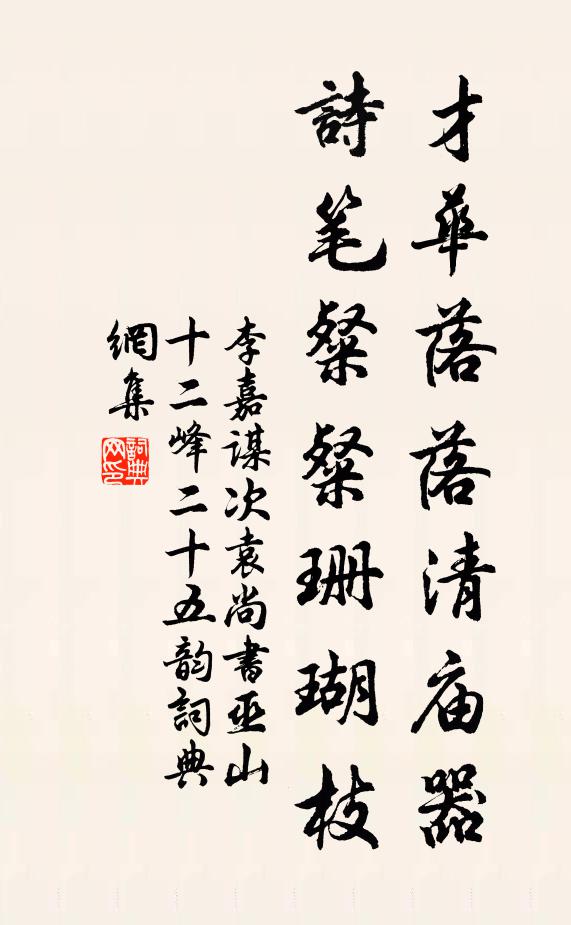 才華落落清庙器
詩笔粲粲珊瑚枝
李嘉謀次袁尚書巫山
十二峰二十五韵詞典
網集
詞典
网印